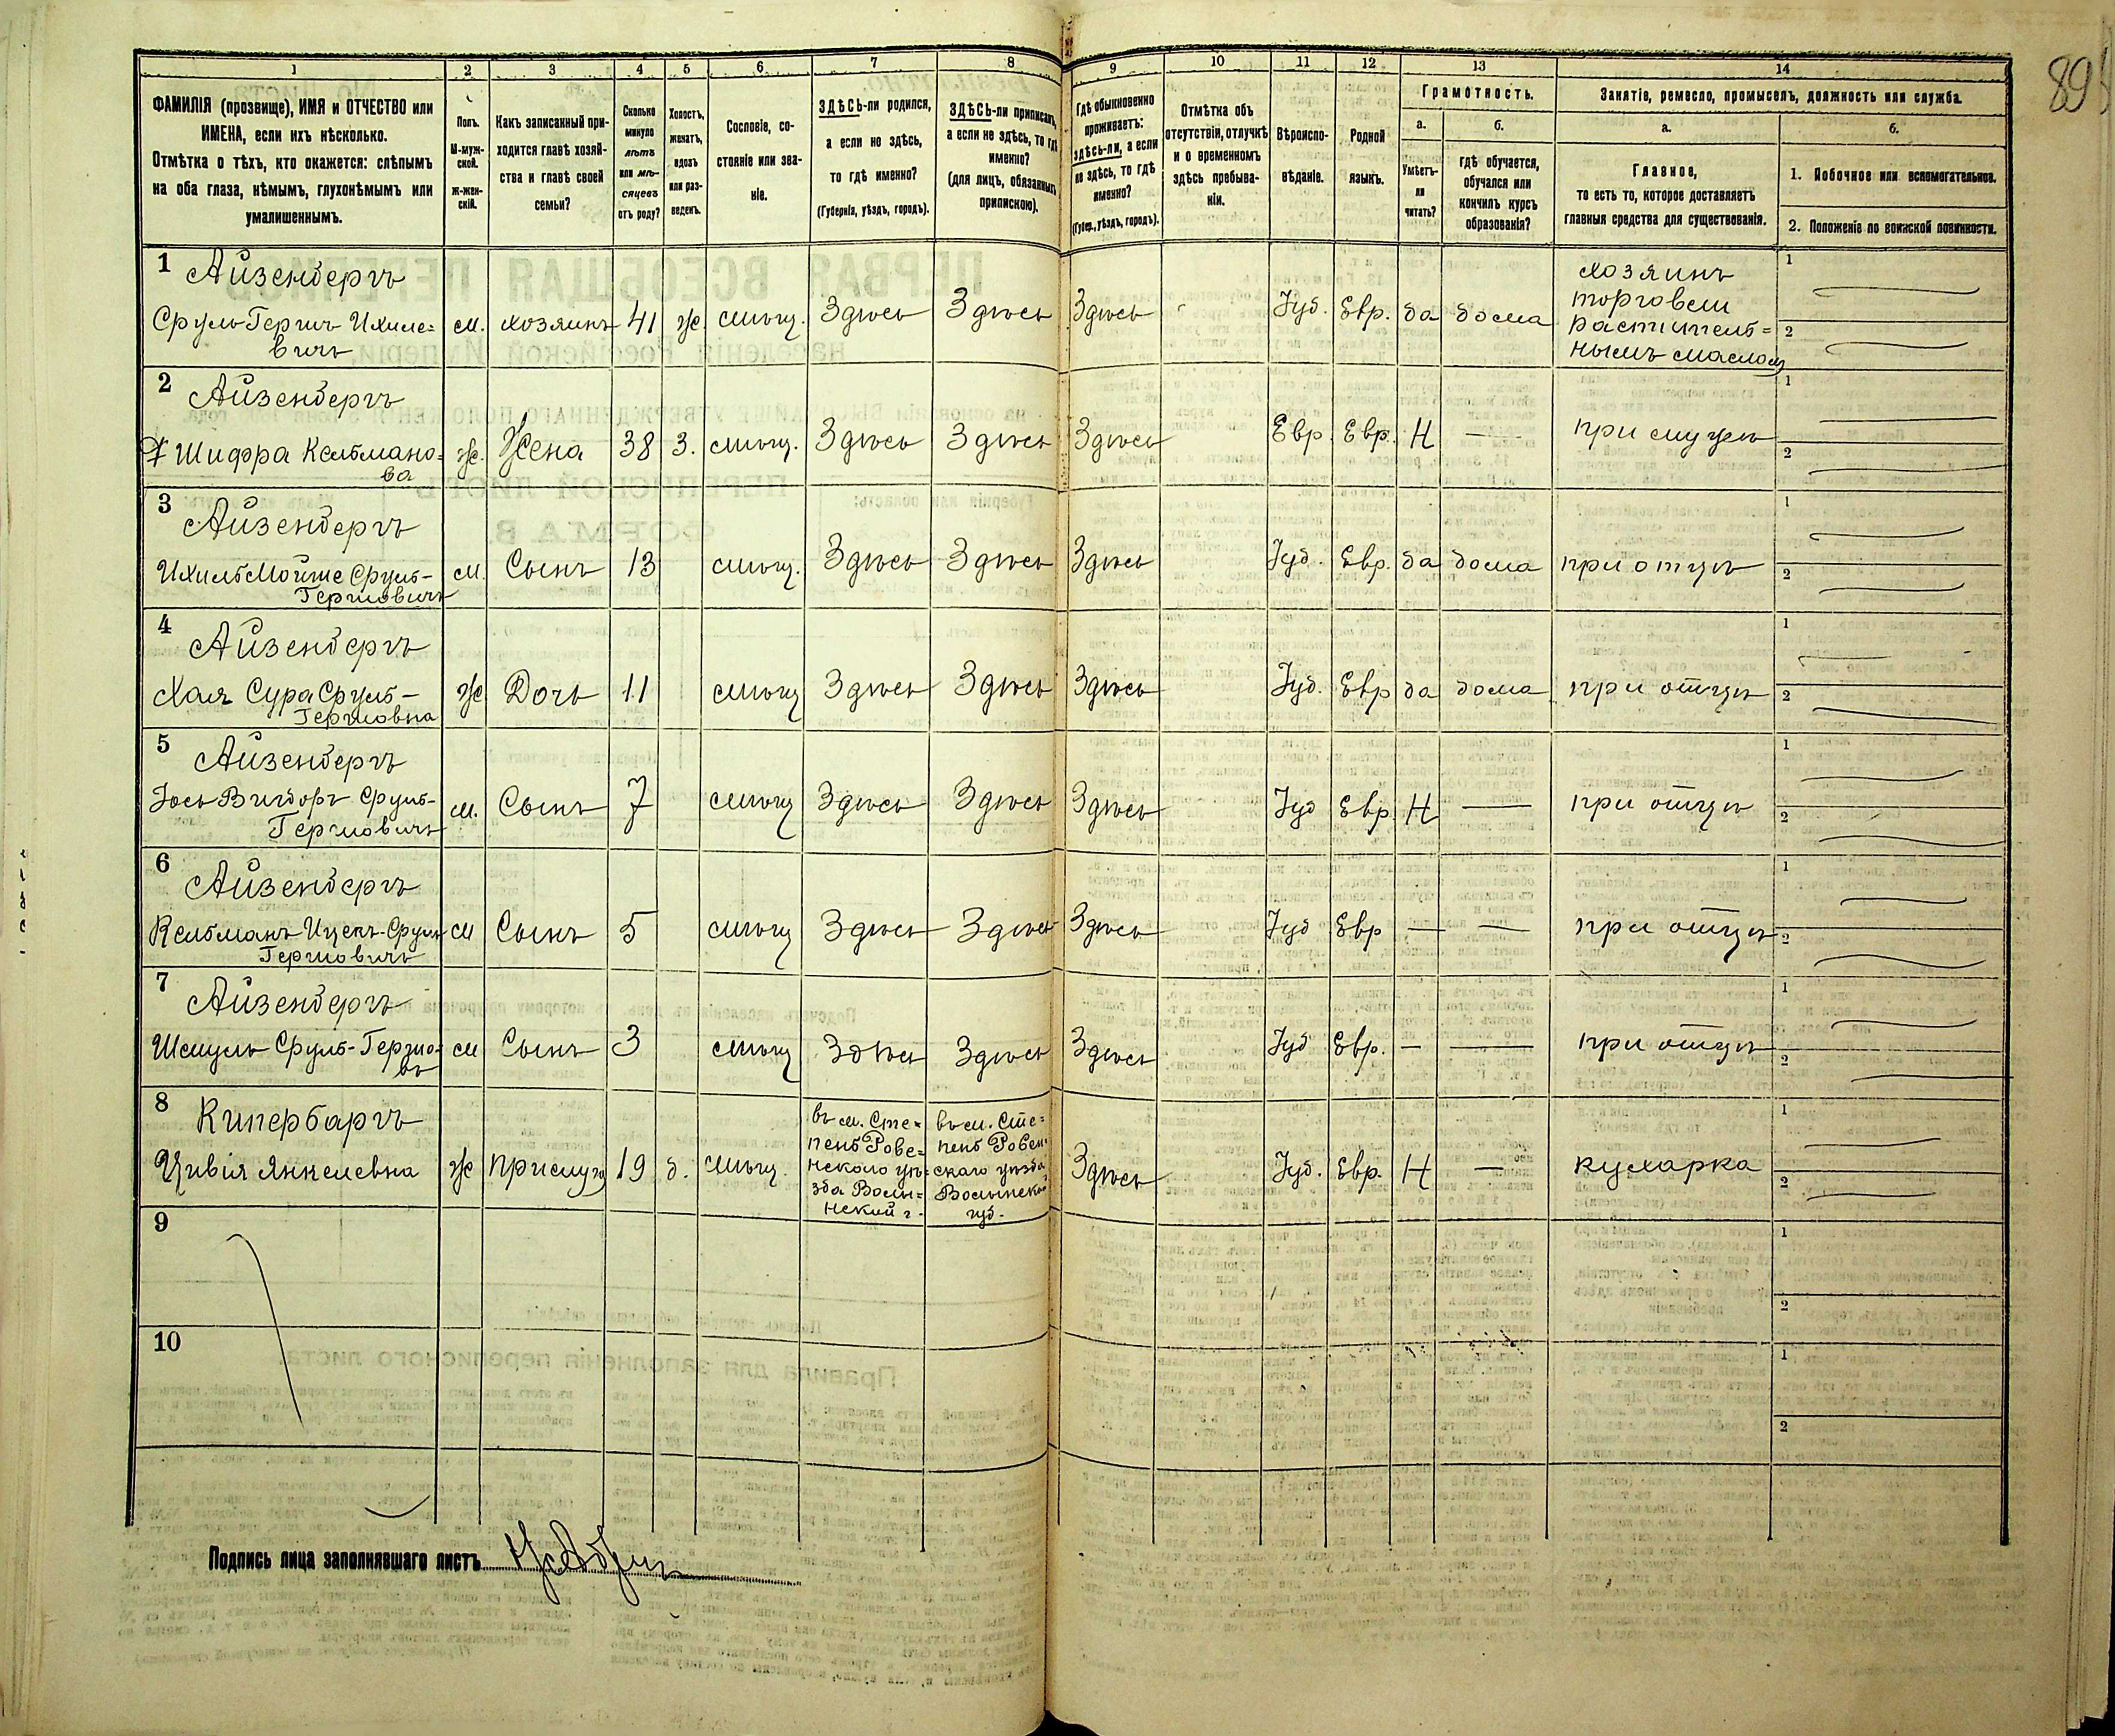 89
1 2 3 4 5 6 7 8 9 10 11 12 13 14
ФАМИЛІЯ (прозвище), ИМЯ и ОТЧЕСТВО или
ИМЕНА, если ихъ нѣсколько.
Отмѣтка о тѣхъ, кто окажется: слѣпымъ
на оба глаза, нѣмымъ, глухонѣмымъ или
умалишеннымъ.
Полъ.
М-муж-
ской.
Ж-жен-
скій.
Какъ записанный при-
ходится главѣ хозяй-
ства и главѣ своей
семьи?
Сколько
минуло
лѣтъ
или мѣ-
сяцевъ
отъ роду?
Холостъ,
женатъ,
вдовъ
или раз-
веденъ.
Сословіе, со-
стояніе или зва-
ніе.
ЗДѢСЬ-ли родился,
а если не здѣсь,
то гдѣ именно?
(Губернія, уѣздъ, городъ).
ЗДѢСЬ-ли приписанъ,
а если не здѣсь, то гдѣ
именно?
(для лицъ, обязанныхъ
припискою).
Гдѣ обыкновенно
проживаетъ:
здѣсь-ли, а если
не здѣсь, то гдѣ
именно?
(Губер., уѣздъ, городъ).
Отмѣтка объ
отсутствіи, отлучкѣ
и о временномъ
здѣсь пребыва-
ніи.
Вѣроиспо-
вѣданіе.
Родной
языкъ.
Грамотность.
а.
Умѣетъ-
ли
читать?
б.
гдѣ обучается,
обучался или
кончилъ курсъ
образованія?
Занятіе, ремесло, промыселъ, должность или служба.
а.
Главное,
то есть то, которое доставляетъ
главныя средства для существованія.
б.
1. Побочное или вспомогательное.
2. Положеніе по воинской повинности.
1 Айзенбергъ
Сруль-Гершъ Ихиле=
вичъ
м. хозяинъ 41 ж. мѣщ. Здѣсь Здѣсь Здѣсь Іуд. Евр. да дома
хозяинъ
торговли
раститель=
нымъ масломъ
1
2
2 Айзенбергъ
Шифра Кельмано=
ва
ж. Жена 38 З. мѣщ. Здѣсь Здѣсь Здѣсь Евр. Евр. Н — при мужѣ
1
2
3 Айзенбергъ
Ихиль Мойше Сруль-
Гершовичъ
м. Сынъ 13 мѣщ. Здѣсь Здѣсь Здѣсь Іуд. Евр. да дома при отцѣ
1
2
4 Айзенбергъ
Хая Сура Сруль-
Гершовна
ж Дочь 11 мѣщ Здѣсь Здѣсь Здѣсь Іуд. Евр да дома при отцѣ
1
2
5 Айзенбергъ
Іось Вигдоръ Сруль-
Гершовичъ
м. Сынъ 7 мѣщ Здѣсь Здѣсь Здѣсь Іуд Евр. Н — при отцѣ
1
2
6 Айзенбергъ
Кельманъ Ицекъ-Сруль
Гершовичъ
м Сынъ 5 мѣщ Здѣсь Здѣсь Здѣсь Іуд Евр — — при отцѣ
1
2
7 Айзенбергъ
Шмуль Сруль-Гершо-
въ
м Сынъ 3 мѣщ Здѣсь Здѣсь Здѣсь Іуд Евр. — — при отцѣ
1
2
8 Кипербаргъ
Цивія Янкелевна
ж прислуга 19 д. мѣщ.
въ м. Сте=
пень Рове=
нского уѣ=
зда Волы=
нский г.
въ м. Сте=
пень Ровен-
скаго уѣзда
Волынской
губ.
Здѣсь Іуд. Евр. Н — кухарка
1
2
9
1
2
10
1
2
Подпись лица заполнявшаго листъ